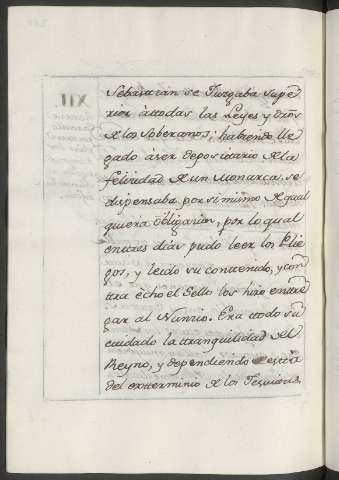 XII.
Sebastian se Juzgaba supe-
rior à todas las Leyes y dros
de los Soberanos; habiendo lle-
gado á ser depositario de la
felicidad de un Monarca, se
dispensaba por si mismo de qual
quiera obligacion, por lo qual
en tres dias pudo leer los Plie-
gos, y leido su contenido, y con-
tra echo el Sello los hizo entre-
gar al Nuncio. Era todo su
cuidado la tranquilidad del
Reyno, y dependiendo esta
del exterminio de los Jesuitas